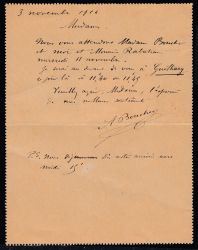 3 novembre 19
Madame
Nous vous attendrons Madame Boucher
et moi et Monsieur Rabatian
mercredi 11 novembre.
Je serai au devant de vous à Guéthary
à 11h40 ou 11h45
Veuillez agréer, Madame, l'expression
de mes meilleurs sentiments
A Boucher
P.S. Nous déjeunerons dès votre arrivée vers
midi 15